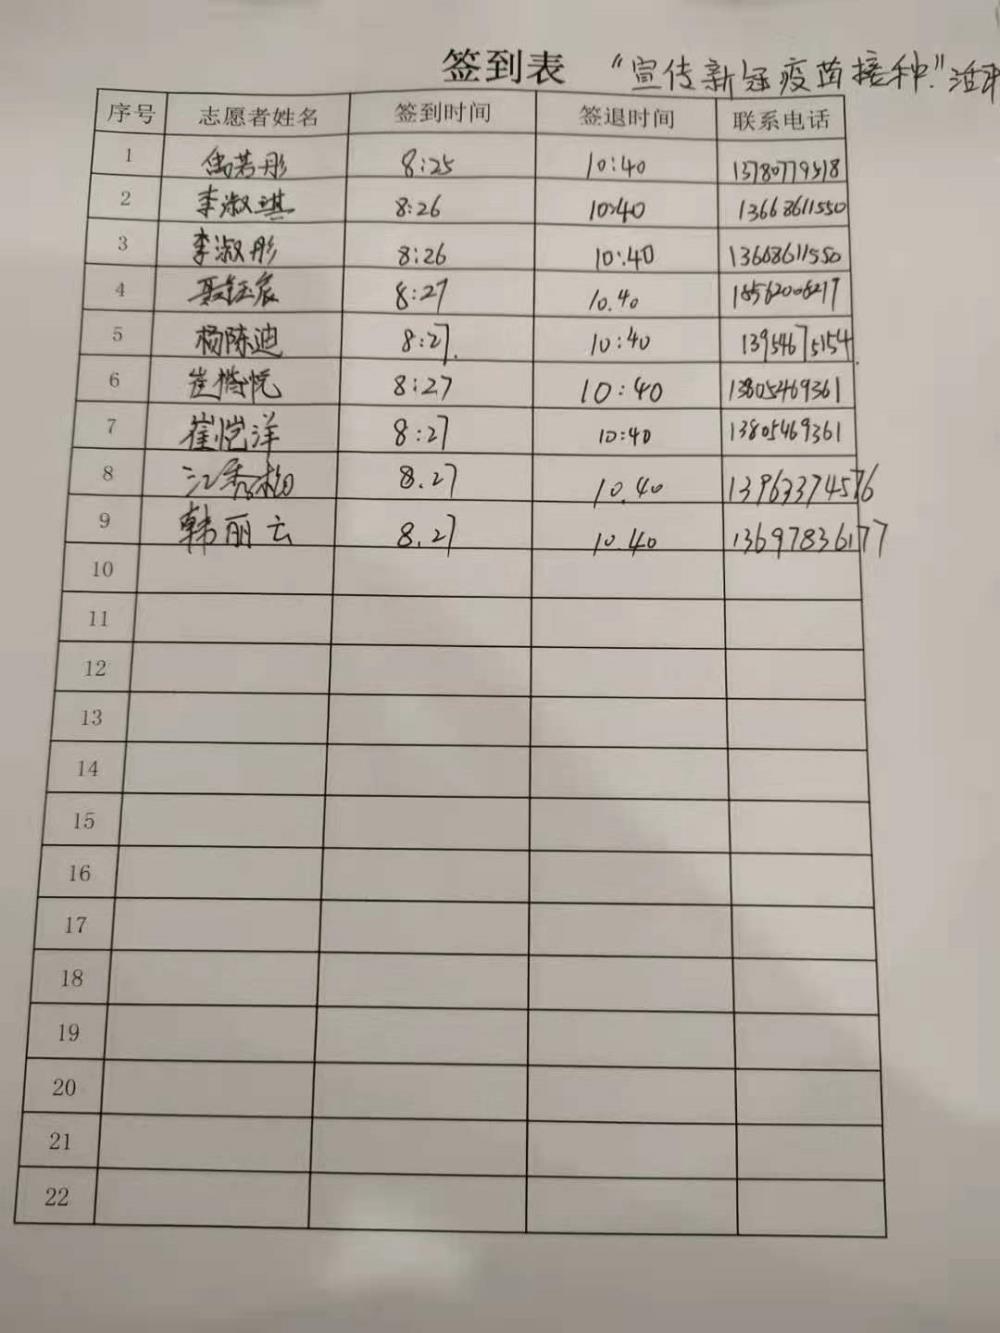 签到表 “宣传新冠疫苗接种”活动
序号 志愿者姓名 签到时间 签退时间 联系电话
1 禹若彤 8:25 10:40 13780779518
2 李淑琪 8:26 10:40 13668611550
3 李淑彤 8:26 10:40 13668611550
4 聂钰宸 8:27 10.40 18562006217
5 杨陈迪 8:27. 10:40 13954675154
6 崔 悦 8:27 10:40 13805469361
7 崔恺洋 8:27 10:40 13805469361
8 江秀梅 8.27 10.40 13963374576
9 韩丽云 8.27 10.40 13697836177
10
11
12
13
14
15
16
17
18
19
20
21
22